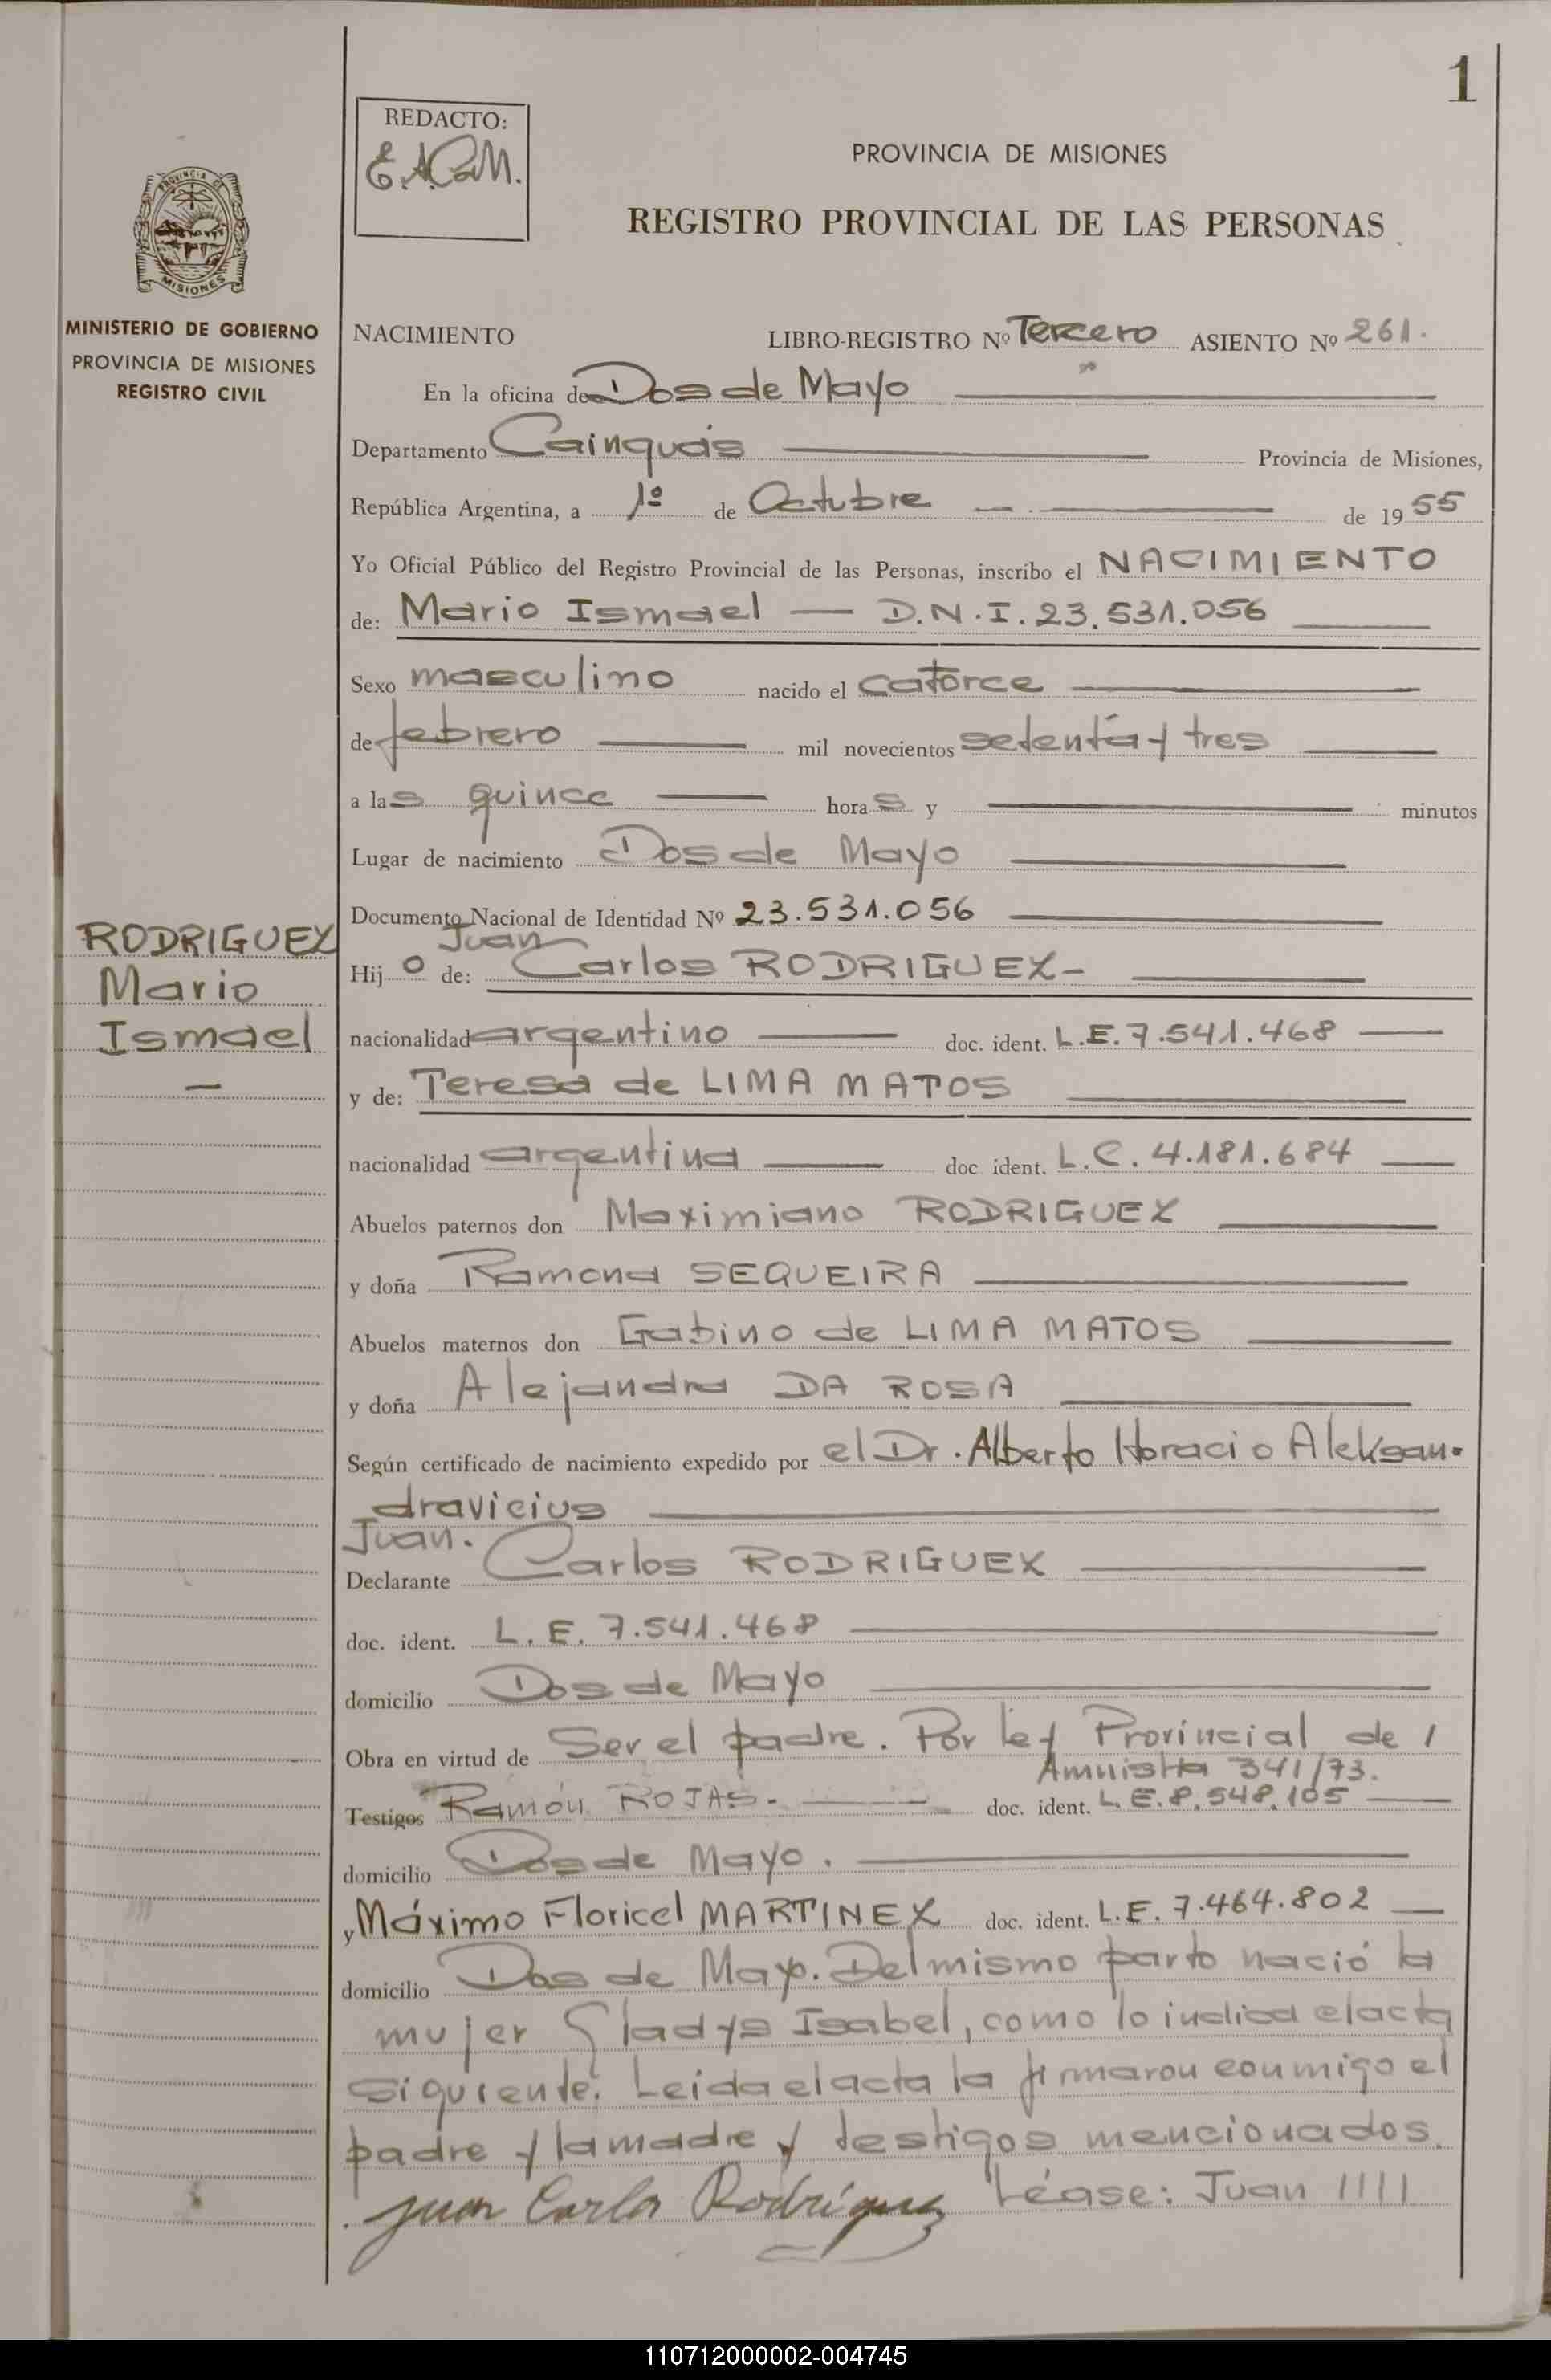 1
REDACTO:
E.A.C.M.
PROVINCIA DE MISIONES
REGISTRO PROVINCIAL DE LAS PERSONAS
PROVINCIA DE
MISIONES
MINISTERIO DE GOBIERNO
PROVINCIA DE MISIONES
REGISTRO CIVIL
NACIMIENTO LIBRO-REGISTRO Nº Tercero ASIENTO Nº 261.
En la oficina de Dos de Mayo
Departamento Cainguás Provincia de Misiones,
República Argentina, a 1º de Octubre de 1955
Yo Oficial Público del Registro Provincial de las Personas, inscribo el NACIMIENTO
de: Mario Ismael — D.N.I. 23.531.056
Sexo masculino nacido el catorce
de febrero mil novecientos setenta y tres
a las quince horas y minutos
Lugar de nacimiento Dos de Mayo
Documento Nacional de Identidad Nº 23.531.056
RODRIGUEZ
Mario
Ismael
Juan
Hijo de: Carlos RODRIGUEZ-
nacionalidad argentino doc. ident. L.E. 7.541.468
y de: Teresa de LIMA MATOS
nacionalidad argentina doc ident. L.C. 4.181.684
Abuelos paternos don Maximiano RODRIGUEZ
y doña Ramona SEQUEIRA
Abuelos maternos don Gabino de LIMA MATOS
y doña Alejandra DA ROSA
Según certificado de nacimiento expedido por el Dr. Alberto Horacio Aleksan-
dravicius
Juan.
Declarante Carlos RODRIGUEZ
doc. ident. L.E. 7.541.468
domicilio Dos de Mayo
Obra en virtud de Ser el padre. Por ley Provincial de
Amnistía 341/73.
Testigos Ramón ROJAS. doc. ident. L.E. 8.548.105
domicilio Dos de Mayo.
y Máximo Floricel MARTINEZ doc. ident. L.E. 7.464.802
domicilio Dos de Mayo. Del mismo parto nació la
mujer Gladys Isabel, como lo indica el acta
siguiente. Leida el acta la firmaron conmigo el
padre y la madre y testigos mencionados.
Juan Carlos Rodríguez Léase: Juan ////
110712000002-004745